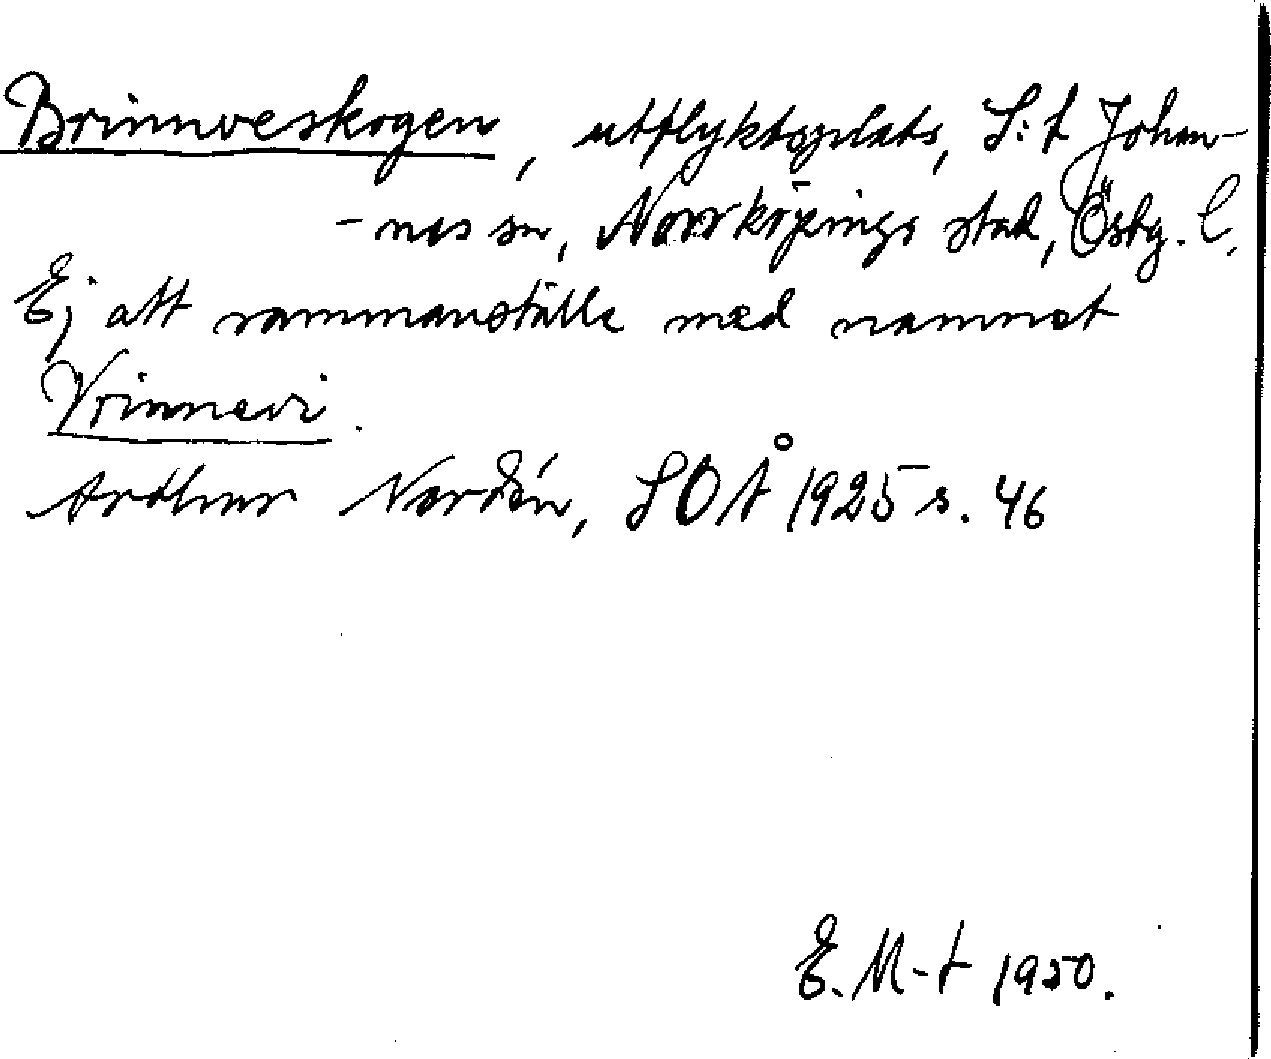 Brinnveskogen, utflyktsplats, S:t Johan-
- nes sn, Norrköpings stad, Östg. l.
Ej att sammanställa med namnet
Vrinnevi.
Arthur Nordén, SOÅ 1925 s. 46
E. M-t 1950.